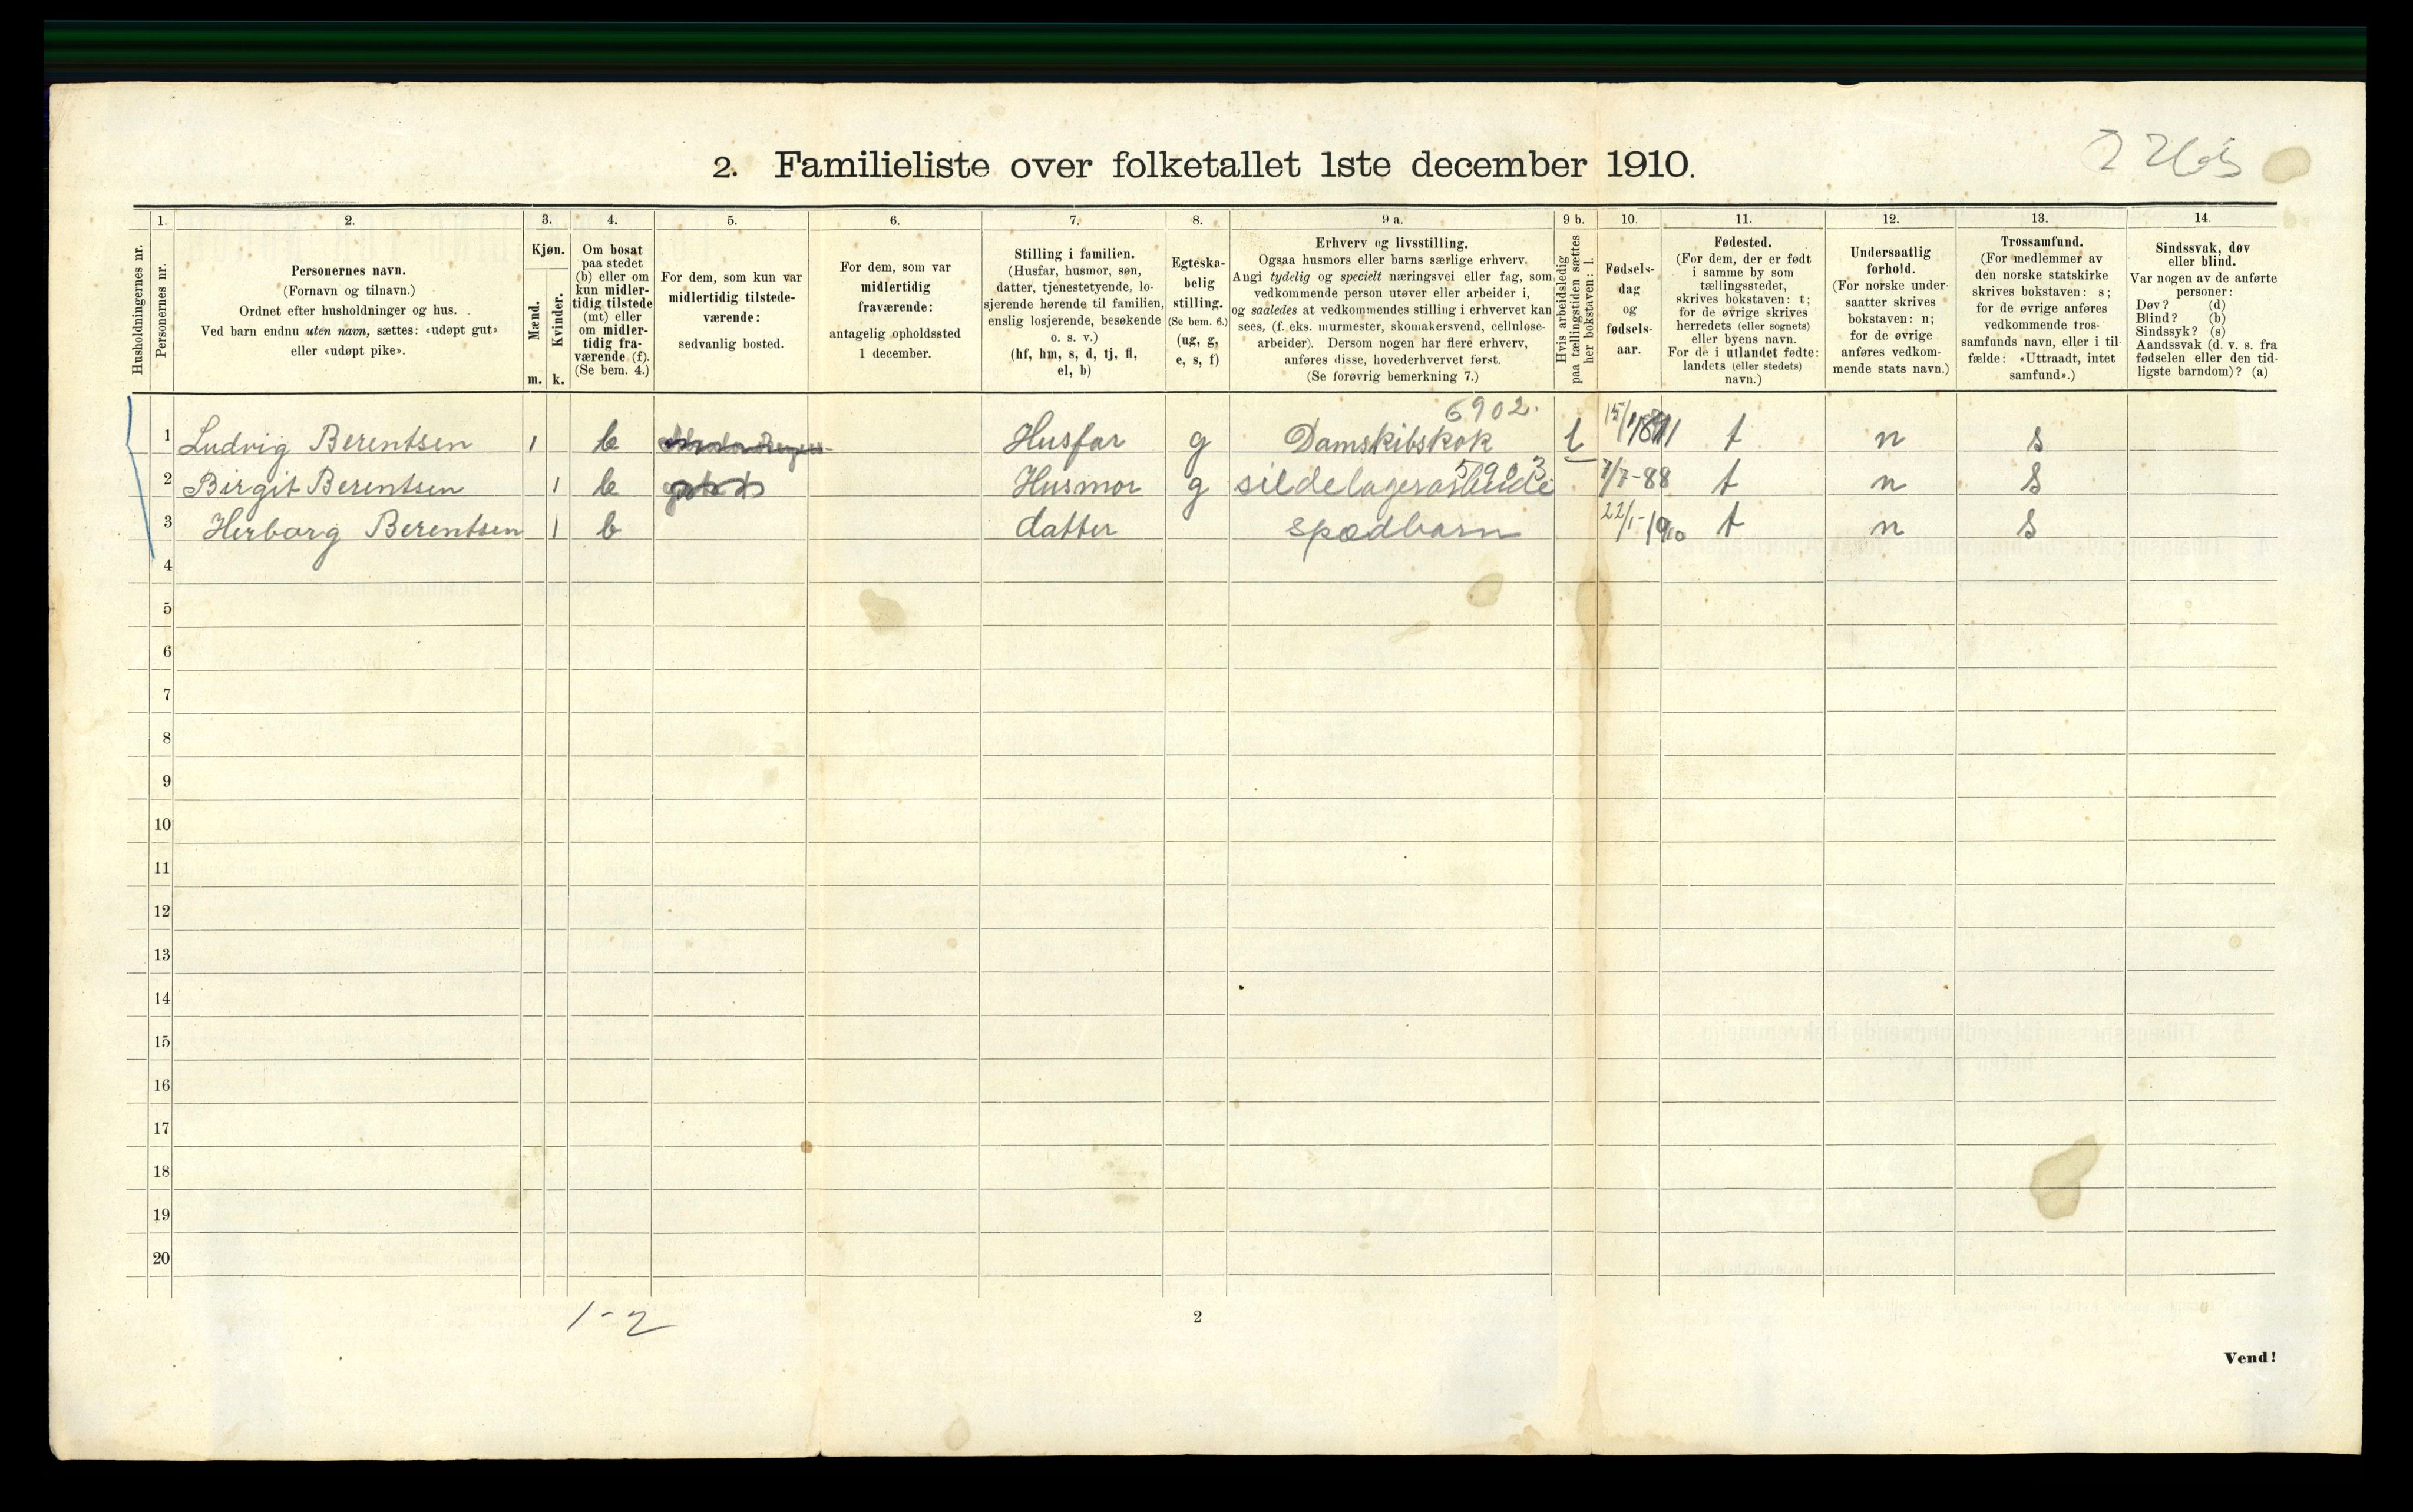 2 265
2. Familieliste over folketallet 1ste december 1910.
Husholdningernes nr.
1. Personernes nr.
2. Personernes navn.
(Fornavn og tilnavn.)
Ordnet efter husholdninger og hus.
Ved barn endnu uten navn, sættes: «udøpt gut»
eller «udøpt pike».
3. Kjøn.
Mænd. m.
Kvinder. k.
4. Om bosat
paa stedet
(b) eller om
kun midler-
tidig tilstede
(mt) eller
om midler-
tidig fra-
værende (f).
(Se bem. 4.)
5. For dem, som kun var
midlertidig tilstede-
værende:
sedvanlig bosted.
6. For dem, som var
midlertidig
fraværende:
antagelig opholdssted
1 december.
7. Stilling i familien.
(Husfar, husmor, søn,
datter, tjenestetyende, lo-
sjerende hørende til familien,
enslig losjerende, besøkende
o. s. v.)
(hf, hm, s, d, tj, fl,
el, b)
8. Egteska-
belig
stilling.
(Se bem. 6.)
(ug, g,
e, s, f)
9 a. Erhverv og livsstilling.
Ogsaa husmors eller barns særlige erhverv.
Angi tydelig og specielt næringsvei eller fag, som
vedkommende person utøver eller arbeider i,
og saaledes at vedkommendes stilling i erhvervet kan
sees, (f. eks. murmester, skomakersvend, cellulose-
arbeider). Dersom nogen har flere erhverv,
anføres disse, hovederhvervet først.
(Se forøvrig bemerkning 7.)
9 b. Hvis arbeidsledig
paa tællingstiden sættes
her bokstaven: l.
10. Fødsels-
dag
og
fødsels-
aar.
11. Fødested.
(For dem, der er født
i samme by som
tællingsstedet,
skrives bokstaven: t;
for de øvrige skrives
herredets (eller sognets)
eller byens navn.
For de i utlandet fødte:
landets (eller stedets)
navn.)
12. Undersaatlig
forhold.
(For norske under-
saatter skrives
bokstaven: n;
for de øvrige
anføres vedkom-
mende stats navn.)
13. Trossamfund.
(For medlemmer av
den norske statskirke
skrives bokstaven: s;
for de øvrige anføres
vedkommende tros-
samfunds navn, eller i til-
fælde: «Uttraadt, intet
samfund».)
14. Sindssvak, døv
eller blind.
Var nogen av de anførte
personer:
Døv? (d)
Blind? (b)
Sindssyk? (s)
Aandssvak (d. v. s. fra
fødselen eller den tid-
ligste barndom)? (a)
6902.
1 Ludvig Berentsen 1 b Husfar g Damskibskok l 15/1 t n s
5903
2 Birgit Berentsen 1 b Husmor g sildelagerarbeide 7/7-88 t n s
3 Herborg Berentsen 1 b datter spædbarn 22/1-1910 t n s
4
5
6
7
8
9
10
11
12
13
14
15
16
17
18
19
20
1-2
2
Vend!